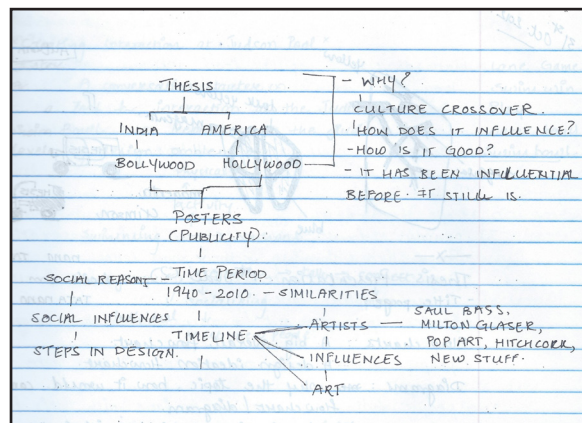 THESIS
INDIA AMERICA
BOLLYWOOD HOLLYWOOD
- WHY?
CULTURE CROSSOVER.
HOW DOES IT INFLUENCE?
- HOW IS IT GOOD?
- IT HAS BEEN INFLUENTIAL
BEFORE. IT STILL IS.
POSTERS
(PUBLICITY).
SOCIAL REASONS - TIME PERIOD
1940 - 2010. - SIMILARITIES
SOCIAL INFLUENCES
STEPS IN DESIGN.
TIMELINE
ARTISTS - SAUL BASS,
MILTON GLASER,
POP ART, HITCHCOCK,
NEW STUFF.
INFLUENCES
ART